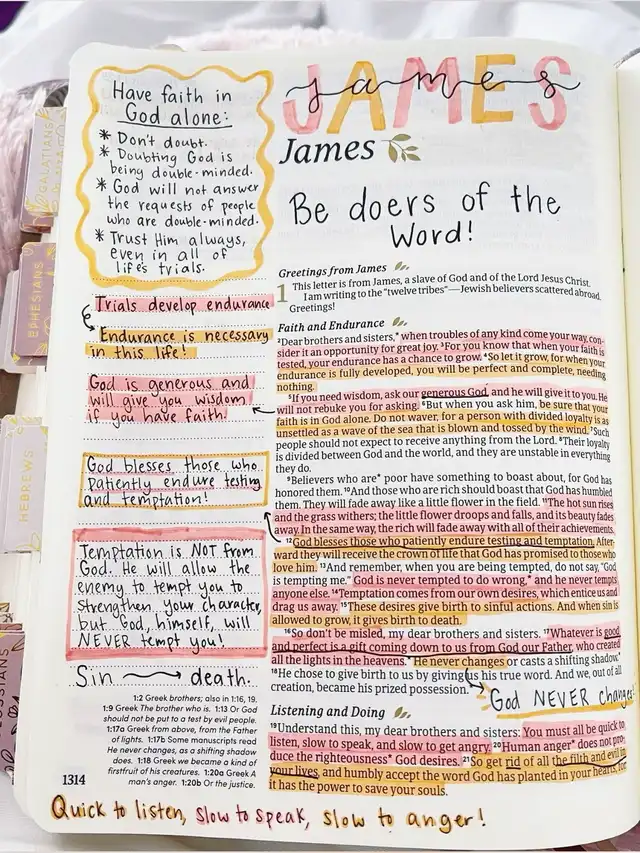 JAMES
james
James
Be doers of the
Word!
Have faith in
God alone:
* Don't doubt.
* Doubting God is
being double-minded.
* God will not answer
the requests of people
who are double-minded.
* Trust Him always,
even in all of
life's trials.
Trials develop endurance
Endurance is necessary
in this life!
God is generous and
will give you wisdom
if you have faith!
God blesses those who
patiently endure testing
and temptation!
Temptation is NOT from
God. He will allow the
enemy to tempt you to
strengthen your character,
but God, himself, will
NEVER tempt you!
Sin → death.
1:2 Greek brothers; also in 1:16, 19.
1:9 Greek The brother who is. 1:13 Or God
should not be put to a test by evil people.
1:17a Greek from above, from the Father
of lights. 1:17b Some manuscripts read
He never changes, as a shifting shadow
does. 1:18 Greek we became a kind of
firstfruit of his creatures. 1:20a Greek A
man's anger. 1:20b Or the justice.
1314
Greetings from James
1 This letter is from James, a slave of God and of the Lord Jesus Christ.
I am writing to the "twelve tribes"—Jewish believers scattered abroad.
Greetings!
Faith and Endurance
2Dear brothers and sisters,* when troubles of any kind come your way, con-
sider it an opportunity for great joy. 3For you know that when your faith is
tested, your endurance has a chance to grow. 4So let it grow, for when your
endurance is fully developed, you will be perfect and complete, needing
nothing.
5If you need wisdom, ask our generous God, and he will give it to you. He
will not rebuke you for asking. 6But when you ask him, be sure that your
faith is in God alone. Do not waver, for a person with divided loyalty is as
unsettled as a wave of the sea that is blown and tossed by the wind. 7Such
people should not expect to receive anything from the Lord. 8Their loyalty
is divided between God and the world, and they are unstable in everything
they do.
9Believers who are* poor have something to boast about, for God has
honored them. 10And those who are rich should boast that God has humbled
them. They will fade away like a little flower in the field. 11The hot sun rises
and the grass withers; the little flower droops and falls, and its beauty fades
away. In the same way, the rich will fade away with all of their achievements.
12God blesses those who patiently endure testing and temptation. After-
ward they will receive the crown of life that God has promised to those who
love him. 13And remember, when you are being tempted, do not say, "God
is tempting me." God is never tempted to do wrong,* and he never tempts
anyone else. 14Temptation comes from our own desires, which entice us and
drag us away. 15These desires give birth to sinful actions. And when sin is
allowed to grow, it gives birth to death.
16So don't be misled, my dear brothers and sisters. 17Whatever is good
and perfect is a gift coming down to us from God our Father, who created
all the lights in the heavens.* He never changes or casts a shifting shadow.*
18He chose to give birth to us by giving us his true word. And we, out of all
creation, became his prized possession.*
God NEVER changes!
Listening and Doing
19Understand this, my dear brothers and sisters: You must all be quick to
listen, slow to speak, and slow to get angry. 20Human anger* does not pro-
duce the righteousness* God desires. 21So get rid of all the filth and evil in
your lives, and humbly accept the word God has planted in your hearts, for
it has the power to save your souls.
Quick to listen, slow to speak, slow to anger!
GALATIANS
EPHESIANS
HEBREWS